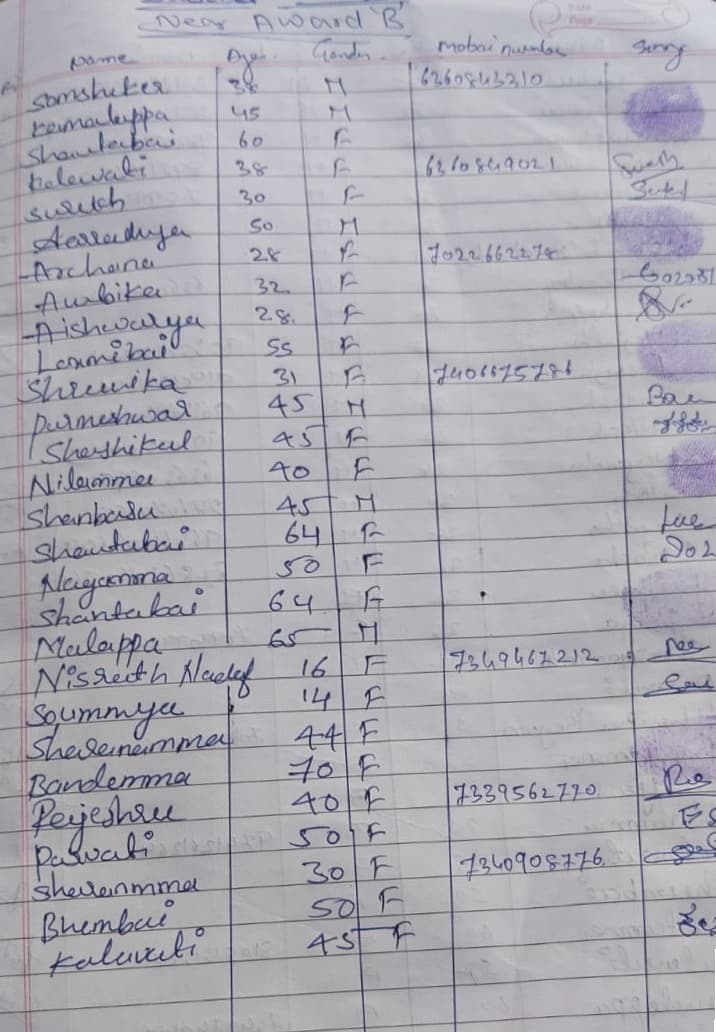 Near Award 'B'
Name Age Gender mobai number
Somsheker 38 M 6360843310
Kamalappa 45 M
Shantabai 60 F
Kalawati 38 F 6360849021
Suresh 30 F
50 M
Archana 28 F 7022662278
Ambika 32 F
Aishwarya 28. F
Laxmibai 55 F
Shremika 31 F 7406675786
Parmeshwar 45 M
Shashikal 45 F
Nilamma 40 F
Shanbasu 45 M
Shantabai 64 F
Nagamma 50 F
Shantabai 64 F
Malappa 65 M
Nisrath Nadaf 16 F 7349467212
Soummya 14 F
Sharanamma 44 F
Bandemma 70 F
40 F 7339562770
Pawati 50 F
Sharanmma 30 F 7340908776
Bhembai 50 F
Kalavati 45 F